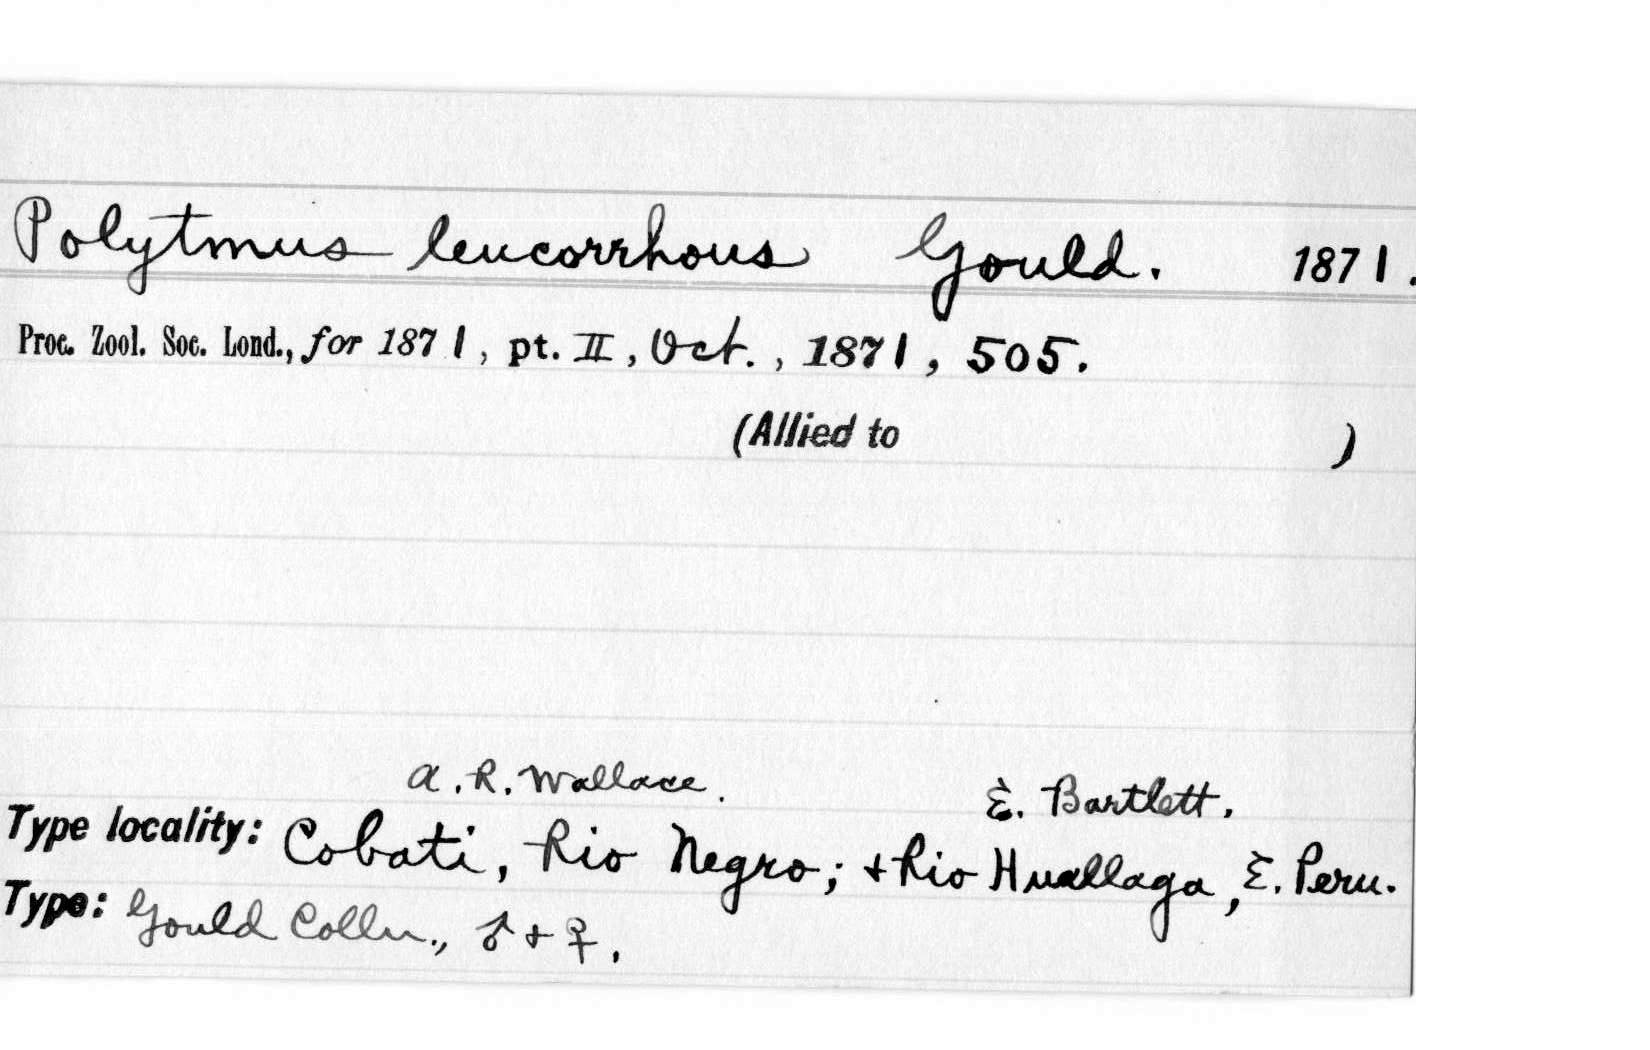 Polytmus leucorrhous Gould. 1871.
Proc. Zool. Soc. Lond., for 1871, pt. II, Oct., 1871, 505.
(Allied to )
A. R. Wallace. E. Bartlett.
Type locality: Cobati, Rio Negro; + Rio Huallaga, E. Peru.
Type: Gould Colln., ♂ + ♀.